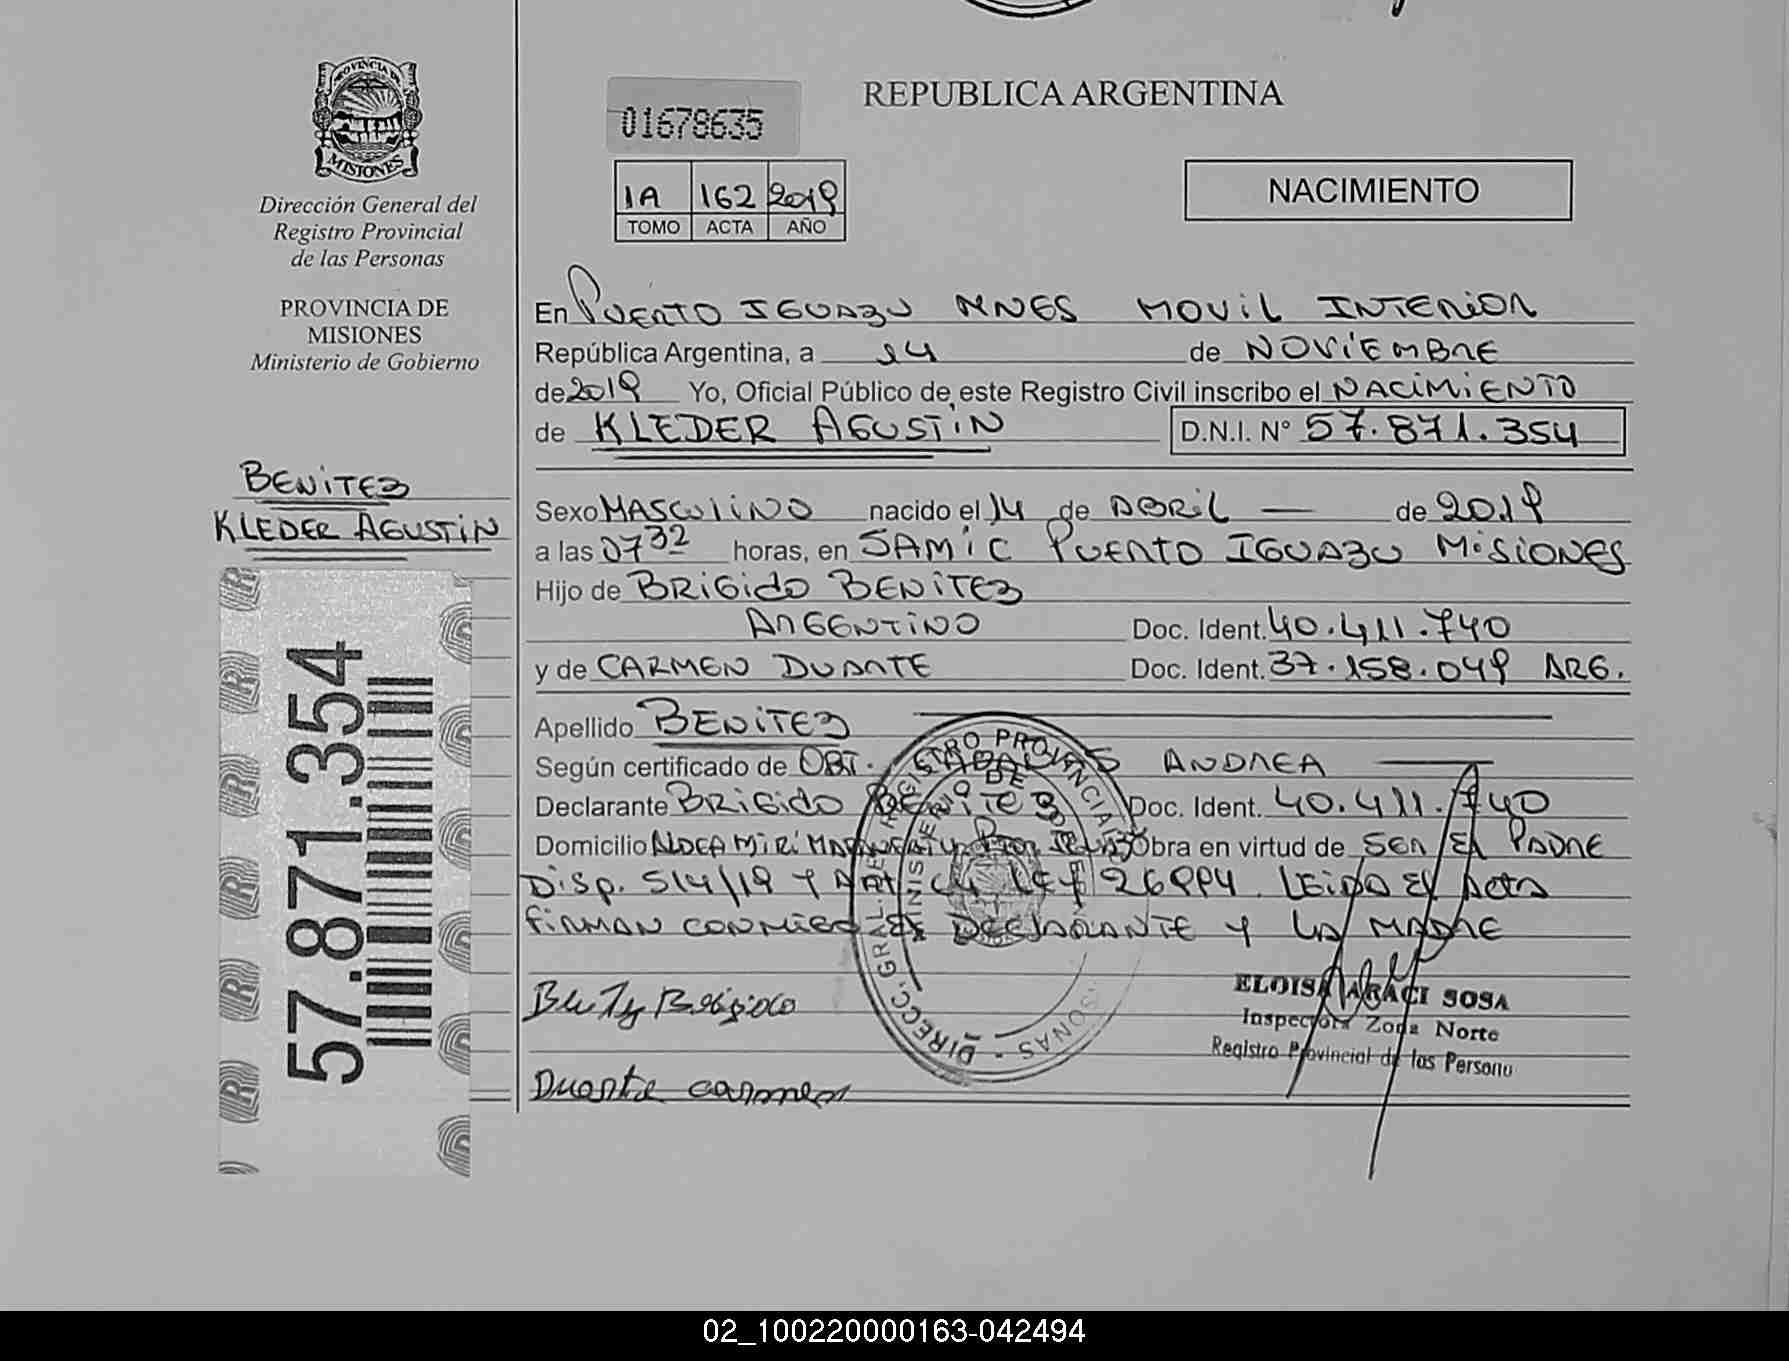 REPUBLICA ARGENTINA
01678635
1A 162 2019
TOMO ACTA AÑO
NACIMIENTO
PROVINCIA DE
MISIONES
Dirección General del
Registro Provincial
de las Personas
PROVINCIA DE
MISIONES
Ministerio de Gobierno
BENITEZ
KLEDER AGUSTIN
57.871.354
En PUERTO IGUAZU MNES MOVIL INTERIOR
República Argentina, a 14 de NOVIEMBRE
de 2019 Yo, Oficial Público de este Registro Civil inscribo el NACIMIENTO
de KLEDER AGUSTIN D.N.I. N° 57.871.354
Sexo MASCULINO nacido el 14 de ABRIL — de 2019
a las 07 32 horas, en SAMIC PUERTO IGUAZU MISIONES
Hijo de BRIGIDO BENITEZ
ARGENTINO Doc. Ident. 40.411.740
y de CARMEN DUARTE Doc. Ident. 37.158.049 ARG.
Apellido BENITEZ
Según certificado de OBT. ANDREA
Declarante BRIGIDO BENITEZ Doc. Ident. 40.411.740
Domicilio ALDEA MIRI Obra en virtud de SER EL PADRE
DISP. 514/19 Y ART. LEY 26994. LEIDA EL ACTA
FIRMAN CONMIGO EL DECLARANTE Y LA MADRE
DIRECC. GRAL. DE REGISTRO PROVINCIAL
MINISTERIO DE
ELOISA ARACI SOSA
Inspectora Zona Norte
Registro Provincial de las Persona
Duarte carmen
02_100220000163-042494